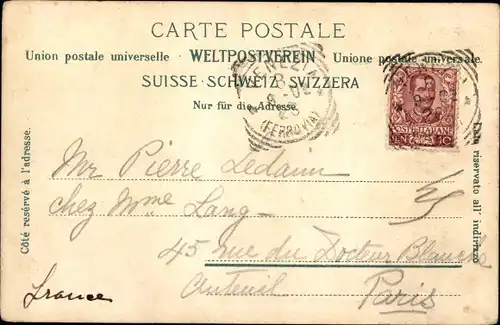 CARTE POSTALE
Union postale universelle · WELTPOSTVEREIN · Unione postale universale.
SUISSE · SCHWEIZ · SVIZZERA
Nur für die Adresse.
Côté reservé à l'adresse.
VENEZIA
(FERROVIA)
POSTE ITALIANE
Lato riservato all' indirizzo
Mr Pierre Ledann
chez Mme Lang
45 rue du Docteur Blanche
Auteuil Paris
France